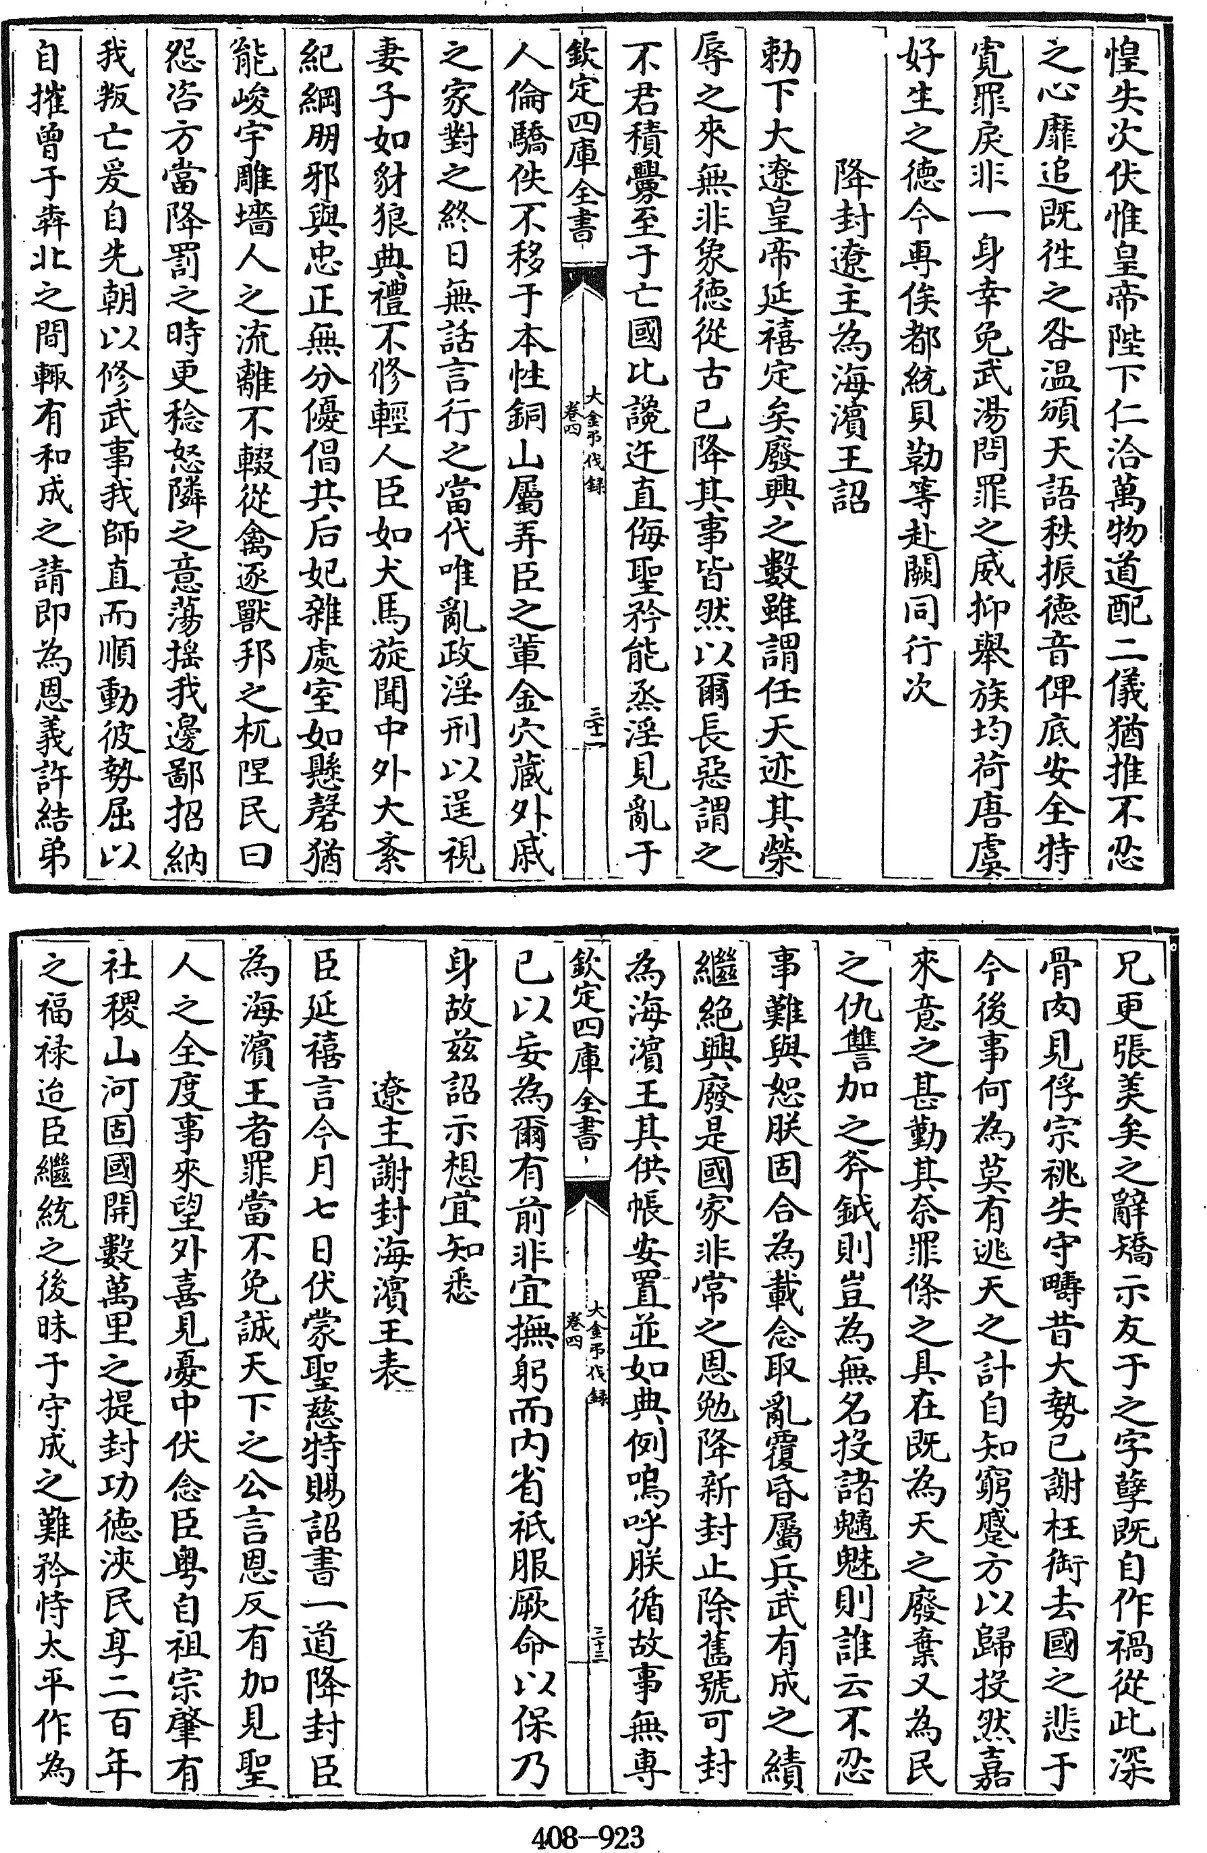 惶失次伏惟皇帝陛下仁洽萬物道配二儀猶推不忍
之心靡追既徃之咎温頒天語秩振德音俾底安全特
寛罪戾非一身幸免武湯問罪之威抑舉族均荷唐虞
好生之德今專俟都統貝勒等赴闕同行次
降封遼主為海濱王詔
勅下大遼皇帝延禧定矣廢興之數雖謂任天迹其榮
辱之來無非象德從古已降其事皆然以爾長惡謂之
不君積釁至于亡國比讒迕直侮聖矜能烝淫見亂于
欽定四庫全書
大金弔伐録
卷四
三十二
人倫驕佚不移于本性銅山屬弄臣之輩金穴蔵外戚
之家對之終日無話言行之當代唯亂政淫刑以逞視
妻子如豺狼典禮不修輕人臣如犬馬旋聞中外大紊
紀綱朋邪與忠正無分優倡共后妃雜處室如懸磬猶
能峻宇雕墻人之流離不輟從禽逐獸邦之杌隉民曰
怨咨方當降罰之時更稔怒隣之意蕩揺我邊鄙招納
我叛亡爰自先朝以修武事我師直而順動彼勢屈以
自摧曾于犇北之間輙有和成之請即為恩義許結弟
兄更張美矣之辭矯示友于之字孽既自作禍從此深
骨肉見俘宗祧失守疇昔大勢已謝枉銜去國之悲于
今後事何為莫有逃天之計自知窮蹙方以歸投然嘉
來意之甚勤其奈罪條之具在既為天之廢棄又為民
之仇讐加之斧鉞則豈為無名投諸魑魅則誰云不忍
事難與恕朕固合為載念取亂覆昏屬兵武有成之績
繼絶興廢是國家非常之恩勉降新封止除舊號可封
為海濱王其供帳安置並如典例嗚呼朕循故事無專
欽定四庫全書
大金弔伐録
卷四
三十三
已以妄為爾有前非宜撫躬而内省祗服厥命以保乃
身故兹詔示想宜知悉
遼主謝封海濱王表
臣延禧言今月七日伏蒙聖慈特賜詔書一道降封臣
為海濱王者罪當不免誠天下之公言恩反有加見聖
人之全度事來望外喜見憂中伏念臣粤自祖宗肇有
社稷山河固國開數萬里之提封功德浹民享二百年
之福禄迨臣繼統之後昧于守成之難矜恃太平作為
408—923